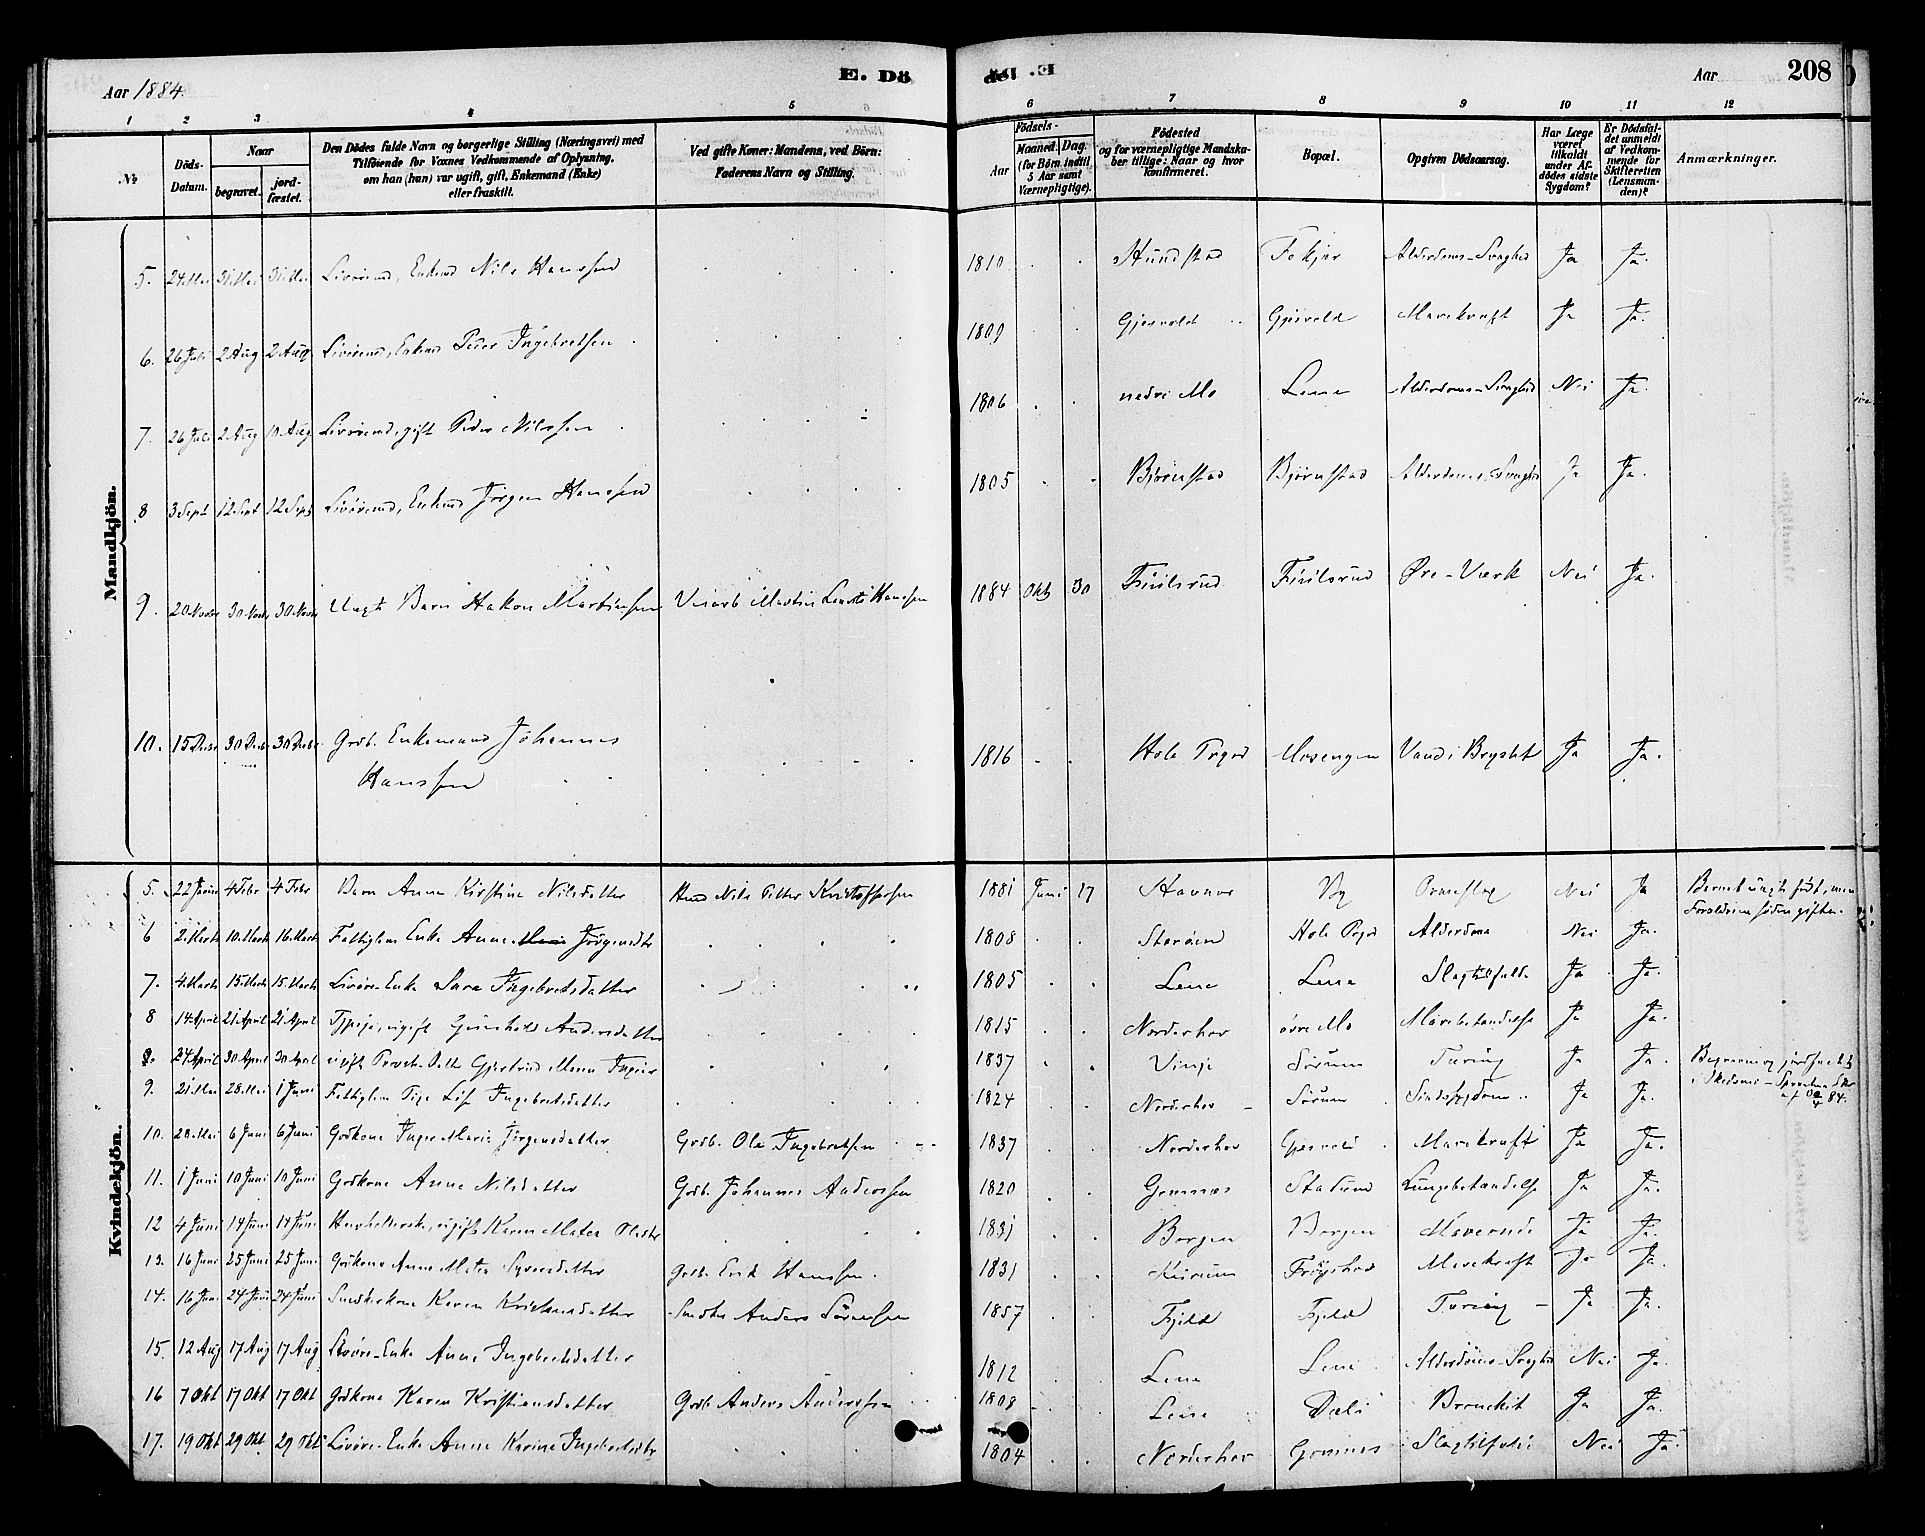 Aar 1884.
E. Dö
E. Dö
Aar
208
1 2 3 4 5 6 7 8 9 10 11 12
№
Döds-Datum.
Naar
begravet.
jord-fæstet.
Den Dödes fulde Navn og borgerlige Stilling (Næringsvei) med
Tilföiende for Voxnes Vedkommende af Oplysning,
om han (hun) var ugift, gift, Enkemand (Enke)
eller fraskilt.
Ved gifte Koner: Mandens, ved Börn:
Faderens Navn og Stilling.
Födsels-
Aar
Maaned. Dag.
(for Börn indtil
5 Aar samt
Værnepligtige).
Födested
og for værnepligtige Mandska-
ber tillige: Naar og hvor
konfirmeret.
Bopæl.
Opgiven Dödsaarsag.
Har Læge
været
tilkaldt
under Af-
dödes sidste
Sygdom?
Er Dödsfal-
det anmeldt
af Vedkom-
mende for
Skifteretten
(Lensman-
den)?
Anmærkninger.
Mandkjön.
5. 24 Mai 31 Mai 31 Mai Nils Hanssen 1810 Hundstad Alderdoms-Svaghed Ja Ja.
6. 26 Juli 2 Aug 2 Aug Peder Ingebretsen 1809 Gjesvold Gjesvold Mavekræft Ja Ja.
7. 26 Juli 2 Aug 10 Aug gift Peder Nilssen 1806 nedre Mo Lene Alderdoms-Svaghed Nei Ja.
8 3 Sept 12 Sept 12 Sept Jörgen Hanssen 1805 Björnstad Björnstad Alderdoms-Svaghed Ja Ja.
9. 20 Novbr 30 Novbr 30 Novbr Barn Hakon Martinsen Martin Hanssen 1884 Okt 30 Øre-Værk Nei Ja.
10. 15 Decbr 30 Decbr 30 Decbr Grdb. Enkemand Johannes
Hanssen 1816 Hole Prgd Mosengen Vand i Brystet Ja Ja.
Kvindekjön.
5. 22 4 Febr 4 Febr Barn Anne Kirstine Nilsdatter Nils Petter Kristoffersen 1881 Juni 17 Stavnes By Nei Ja Barnet uægte födt, men
Forældrene siden gifte.
6 2 Marts 10 Marts 16 Marts Fattiglem Enke Anne Jörgensdtr 1808 Storöen Hole Prgd Alderdom Nei Ja.
7. 4 Marts 15 Marts 15 Marts Enke Sara Ingebretsdatter 1805 Lene Lene Slagtilfælde Ja Ja.
8 14 April 21 April 21 April ugift Gunhild Andersdatter 1815 Norderhov övre Mo Mavebetændelse Ja Ja.
24 April 30 April 30 April ugift 1837 Vinje Sörum Tæring Ja Ja.
9. 21 Mai 28 Mai 1 Juni Fattiglem Pige Ingebretsdatter 1824 Norderhov Sörum Sindssygdom Ja Ja.
10. 28 Mai 6 Juni 6 Juni Grdkone Inger Marie Jörgensdatter Grdb. Ole Ingebretsen 1837 Norderhov Gjesvold Mavekræft Ja Ja.
11. 1 Juni 10 Juni 10 Juni Grdkone Anne Nilsdatter Grdb. Johannes Anderssen 1820 Gomnes Lungebetændelse Ja Ja.
12 4 Juni 14 Juni 14 Juni ugift Karen Matea Olsdtr 1831 Borgen Borgen Ja Ja.
13. 16 Juni 25 Juni 25 Juni Grdkone Anne Matea Syversdatter Grdb. Erik Hanssen. 1831 Mavekræft Ja Ja.
14. 16 Juni 24 Juni 24 Juni Karen Kristiansdatter Anders Sörenssen 1857 Fjeld Fjeld Tæring Ja Ja.
15. 12 Aug 17 Aug 17 Aug Enke Anne Ingebretsdatter 1812 Lene Lene Alderdoms-Svaghed Nei Ja.
16 7 Okt 17 Okt 17 Okt Grdkone Karen Kristiansdatter Grdb. Anders Anderssen 1808 Lene Bronchit Ja Ja.
17. 19 Okt 29 Okt 29 Okt Enke Anne Karine Ingebretsdtr 1804 Norderhov Gomnes Slagtilfælde Nei Ja.